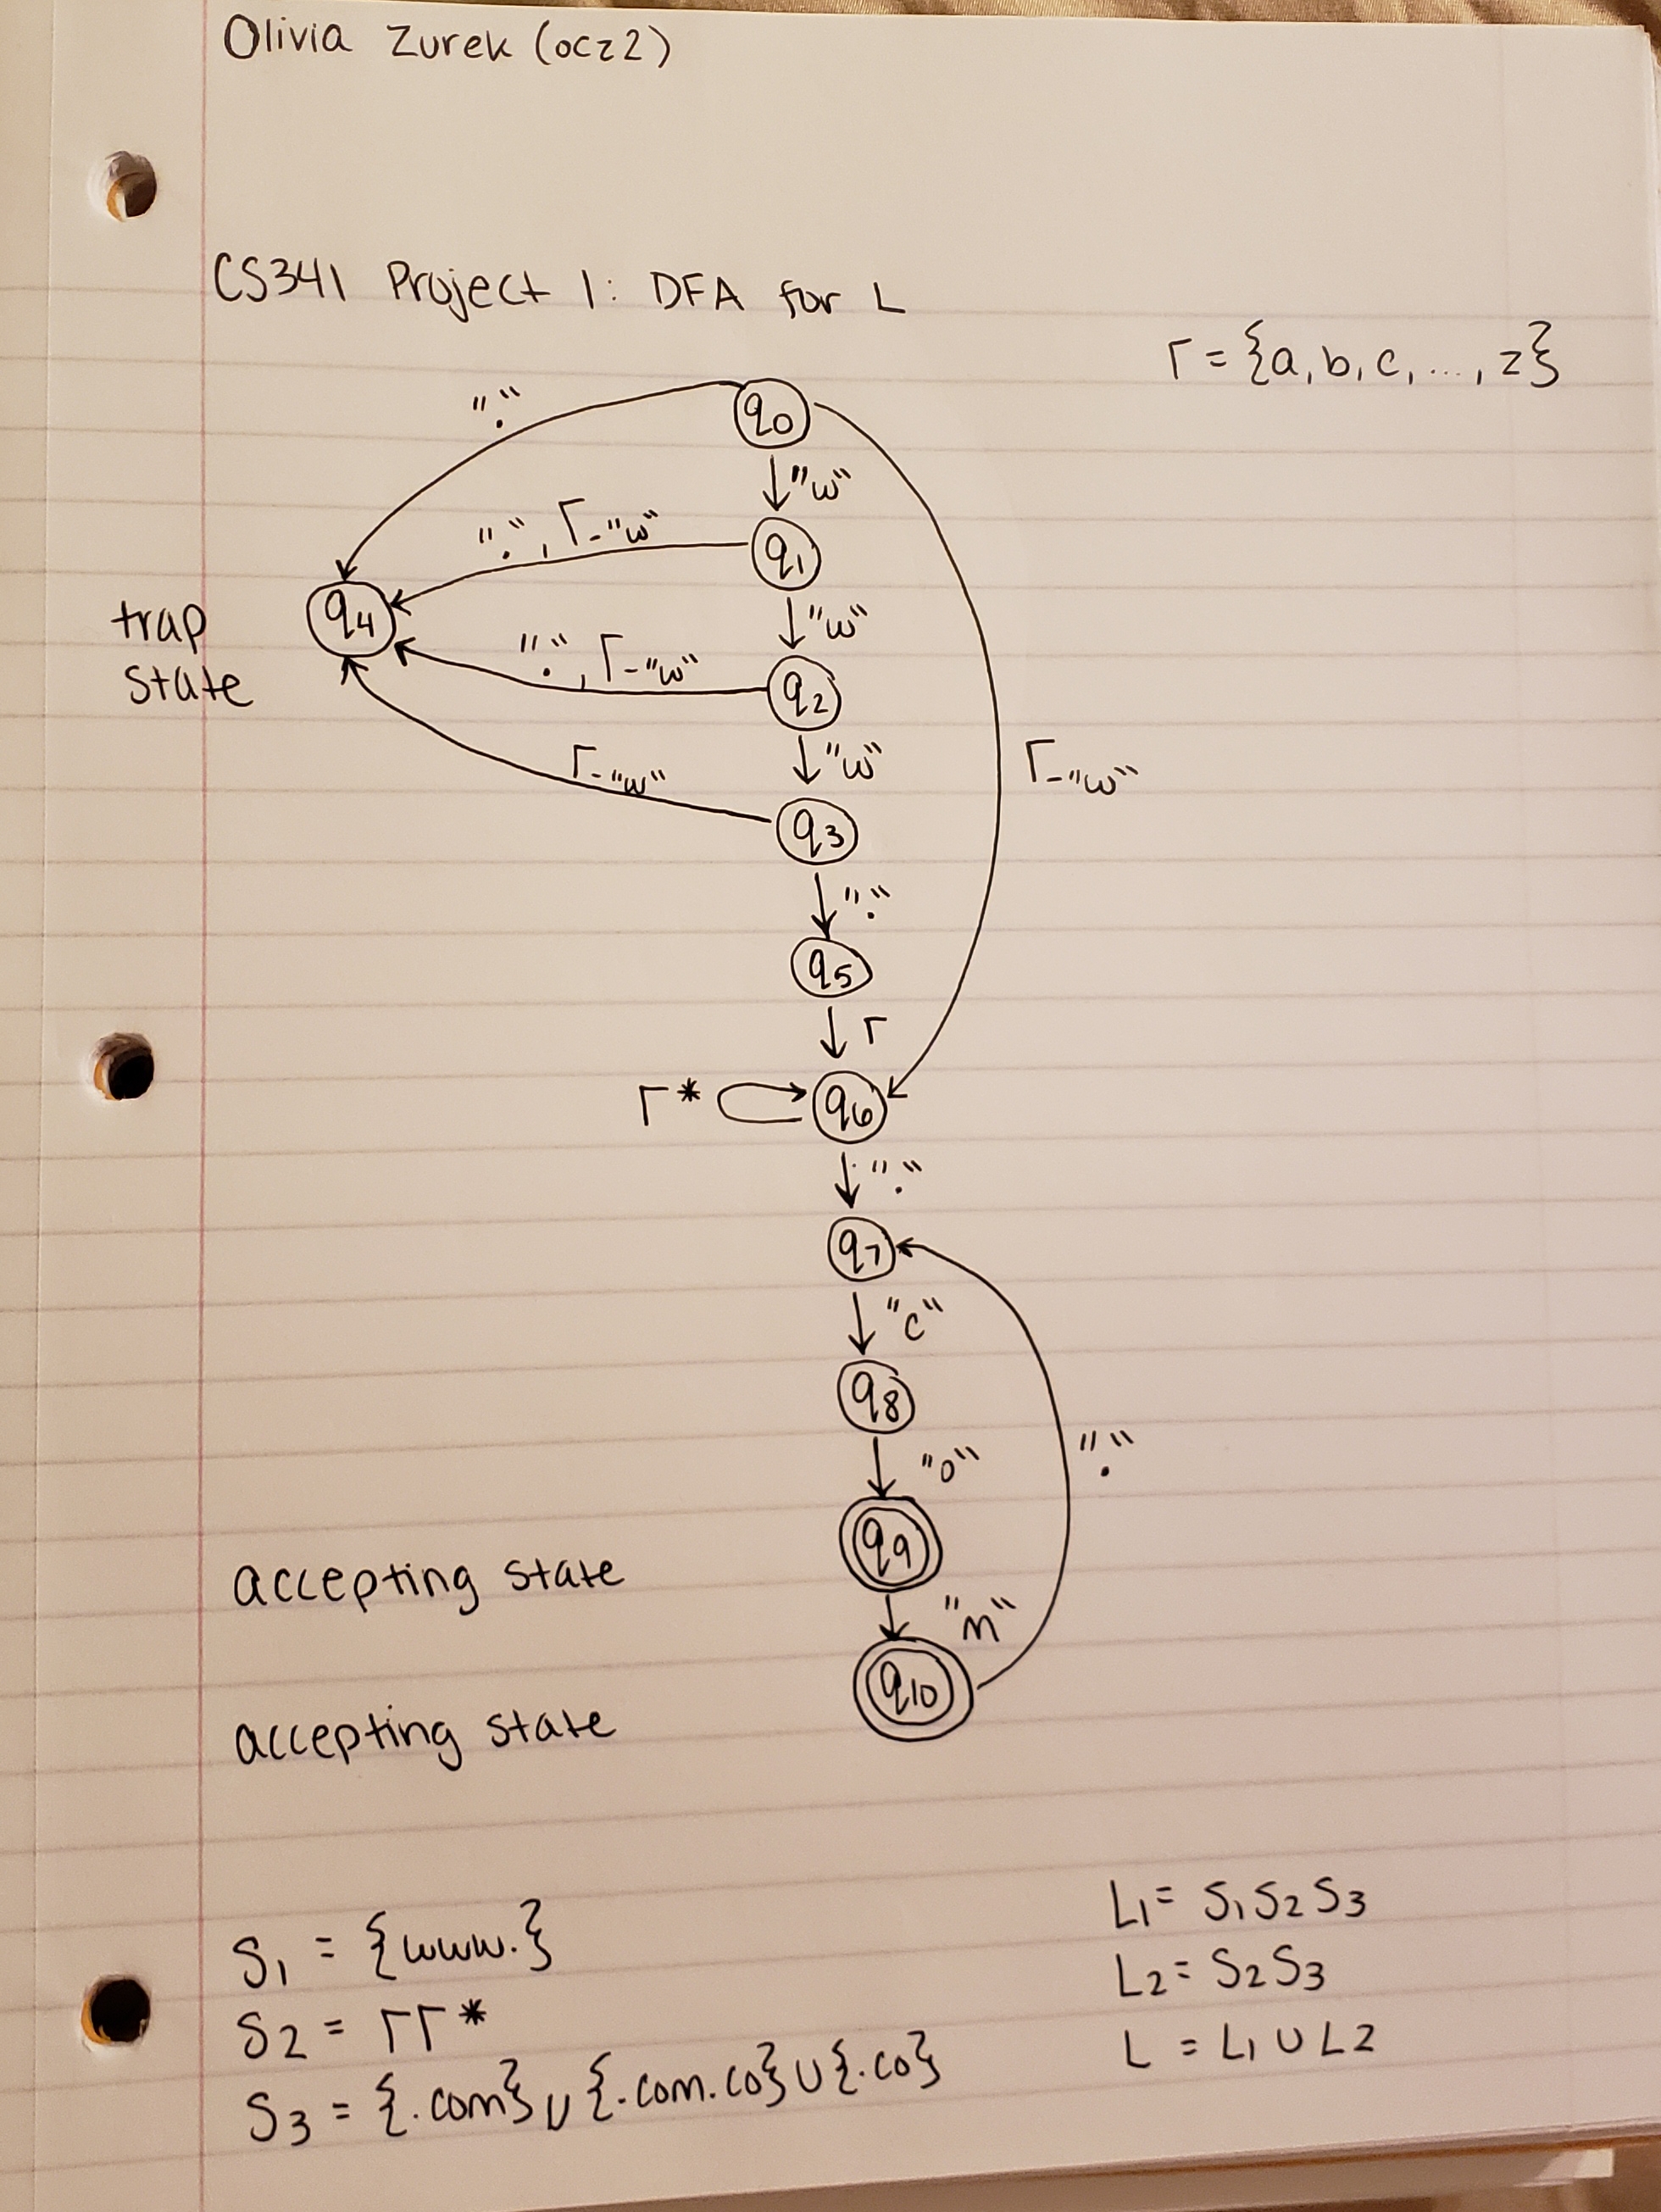 Olivia Zurek (ocz2)
CS341 Project 1: DFA for L
Γ = {a, b, c, ..., z}
"."
q0
"w"
".", Γ-"w"
q1
trap
state
q4
"w"
".", Γ-"w"
q2
"w"
Γ-"w"
Γ-"w"
q3
"."
q5
Γ
Γ*
q6
"."
q7
"c"
q8
"o"
"."
accepting state
q9
"m"
accepting state
q10
S1 = {www.}
S2 = ΓΓ*
S3 = {.com} ∪ {.com.co} ∪ {.co}
L1 = S1S2S3
L2 = S2S3
L = L1 ∪ L2